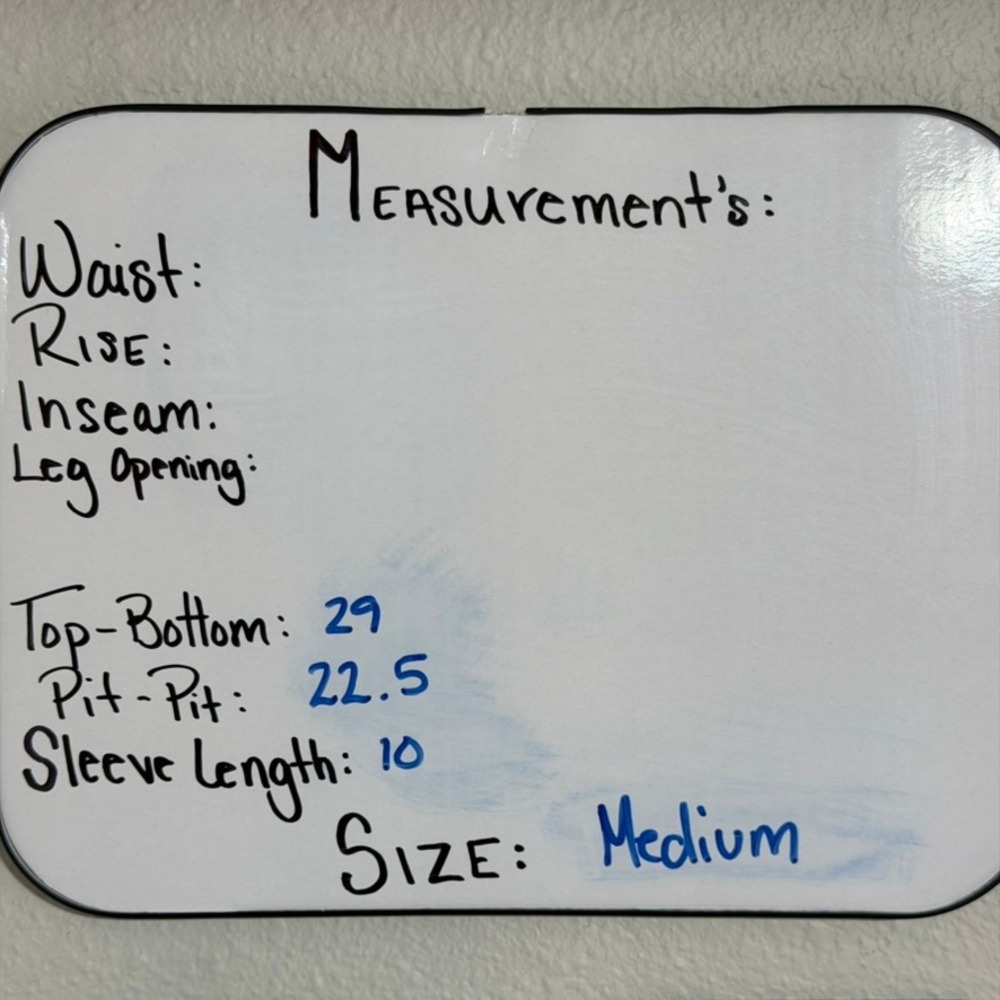 MEASurement's:
Waist:
RISE:
Inseam:
Leg Opening:
Top-Bottom: 29
Pit-Pit: 22.5
Sleeve Length: 10
SIZE: Medium